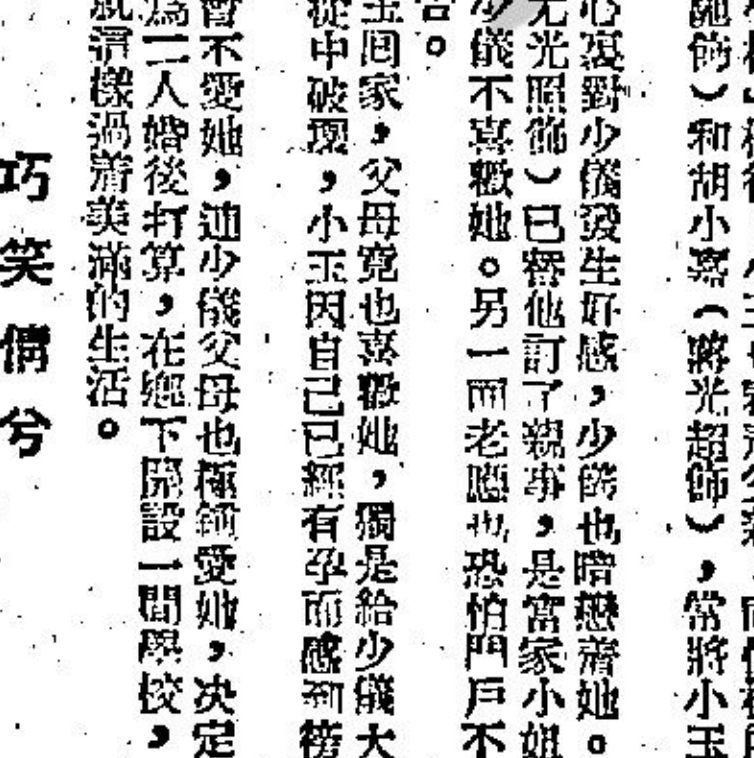 飾）和胡小嘉（蔣光超飾），常將小玉
心裏對少儀發生好感，少儀也暗戀着她。
光照飾）已替他訂了親事，是富家小姐
少儀不喜歡她。另一面老應也恐怕門戶不
。
玉回家，父母竟也喜歡她，獨是給少儀大
從中破壞，小玉因自己已經有孕而感到徬
不愛她，連少儀父母也極鍾愛她，決定
為二人婚後打算，在鄉下開設一間學校，
就這樣過着美滿的生活。
巧笑倩兮